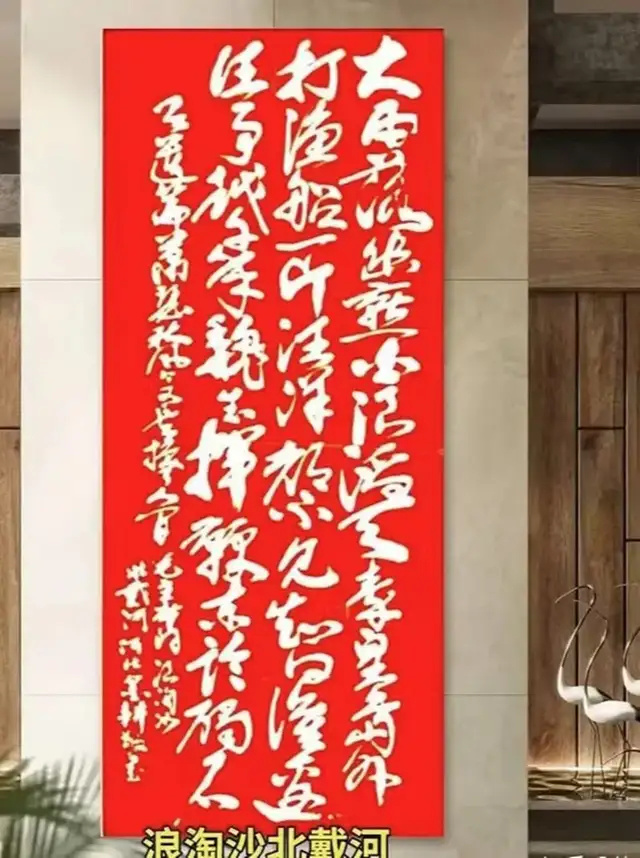 大雨落幽燕白浪滔天秦皇岛外
打渔船一片汪洋都不见知向谁边
往事越千年魏武挥鞭东临碣石
有遗篇萧瑟秋风今又是换了人间
毛主席词浪淘沙
北戴河
浪淘沙北戴河